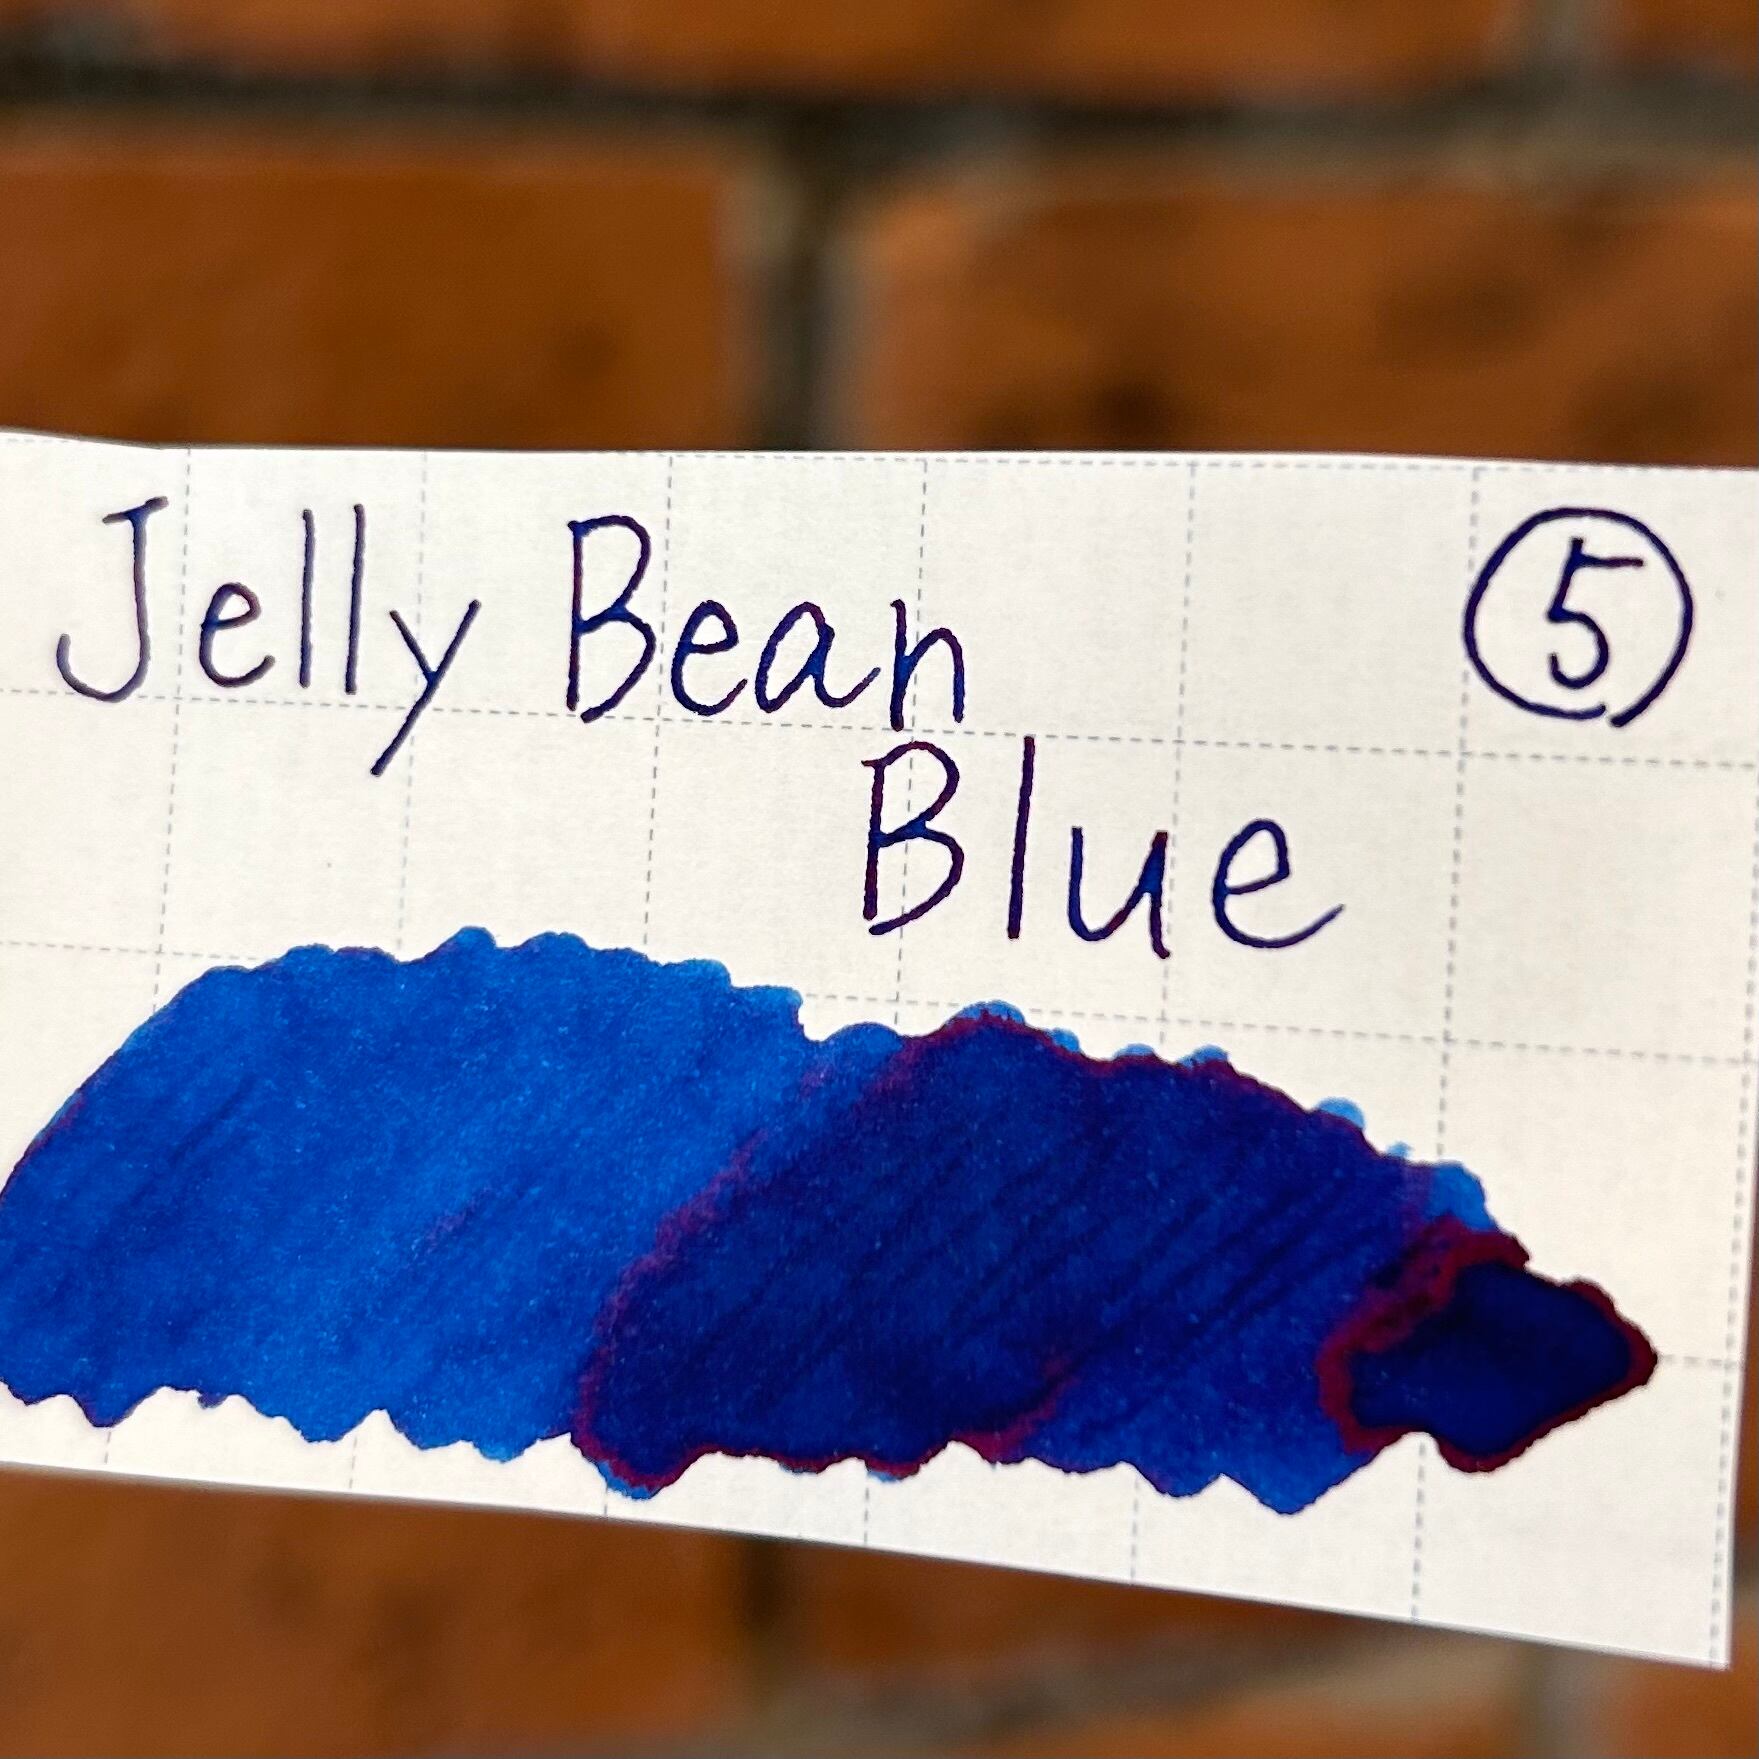 Jelly Bean ⑤
Blue